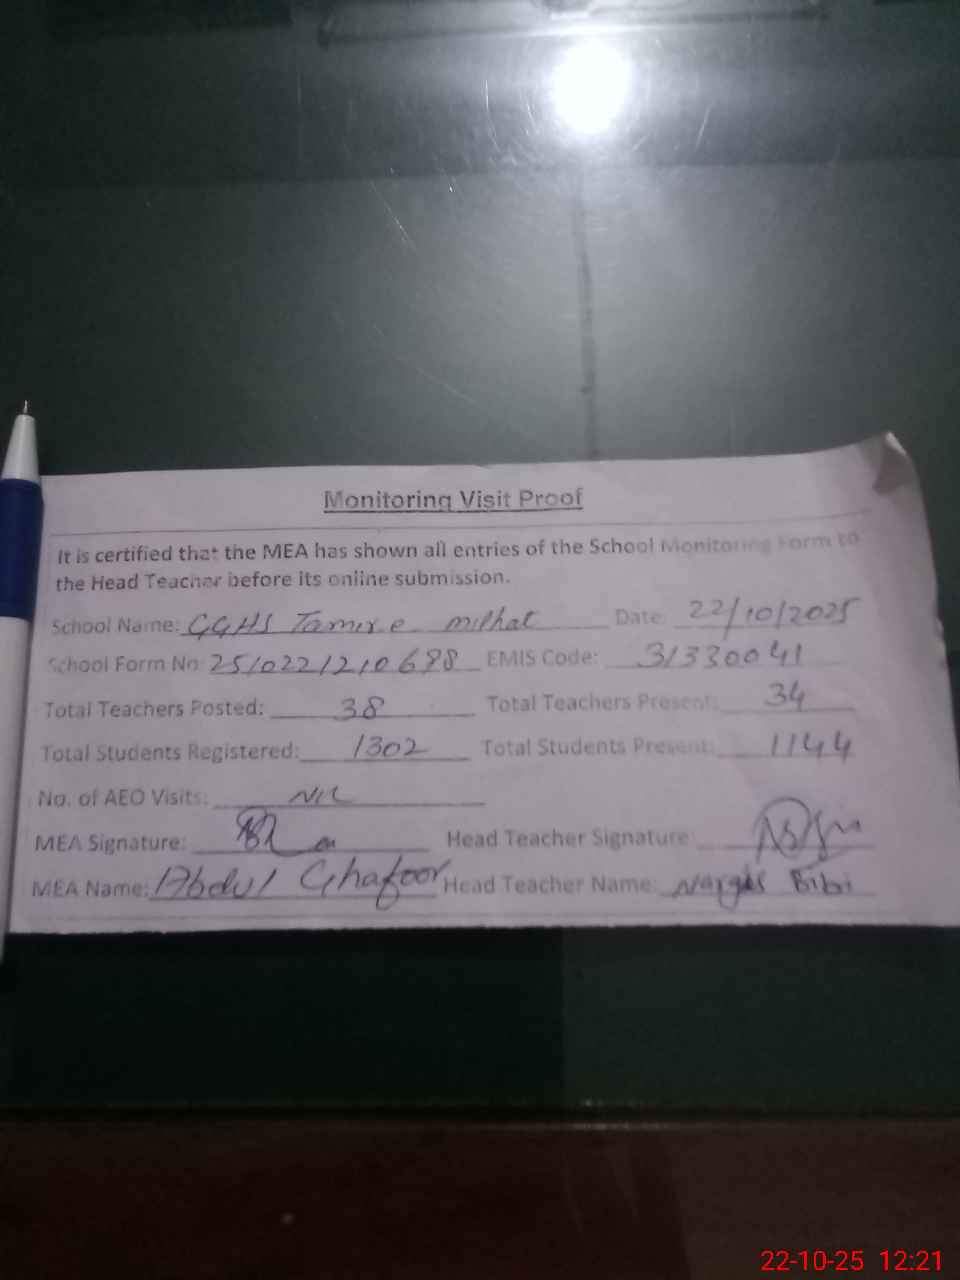 Monitoring Visit Proof
It is certified that the MEA has shown all entries of the School Monitoring Form to
the Head Teacher before its online submission.
School Name: GGHS Tamire milhat Date: 22/10/2025
School Form No: 2510221210698 EMIS Code: 31330041
Total Teachers Posted: 38 Total Teachers Present: 34
Total Students Registered: 1302 Total Students Present: 1144
No. of AEO Visits: NIL
MEA Signature: Head Teacher Signature:
MEA Name: Abdul Ghafoor Head Teacher Name: Narges Bibi
22-10-25 12:21